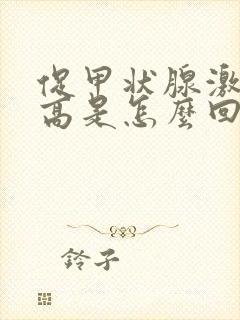 促甲状腺激
高是怎麼回
鈴子